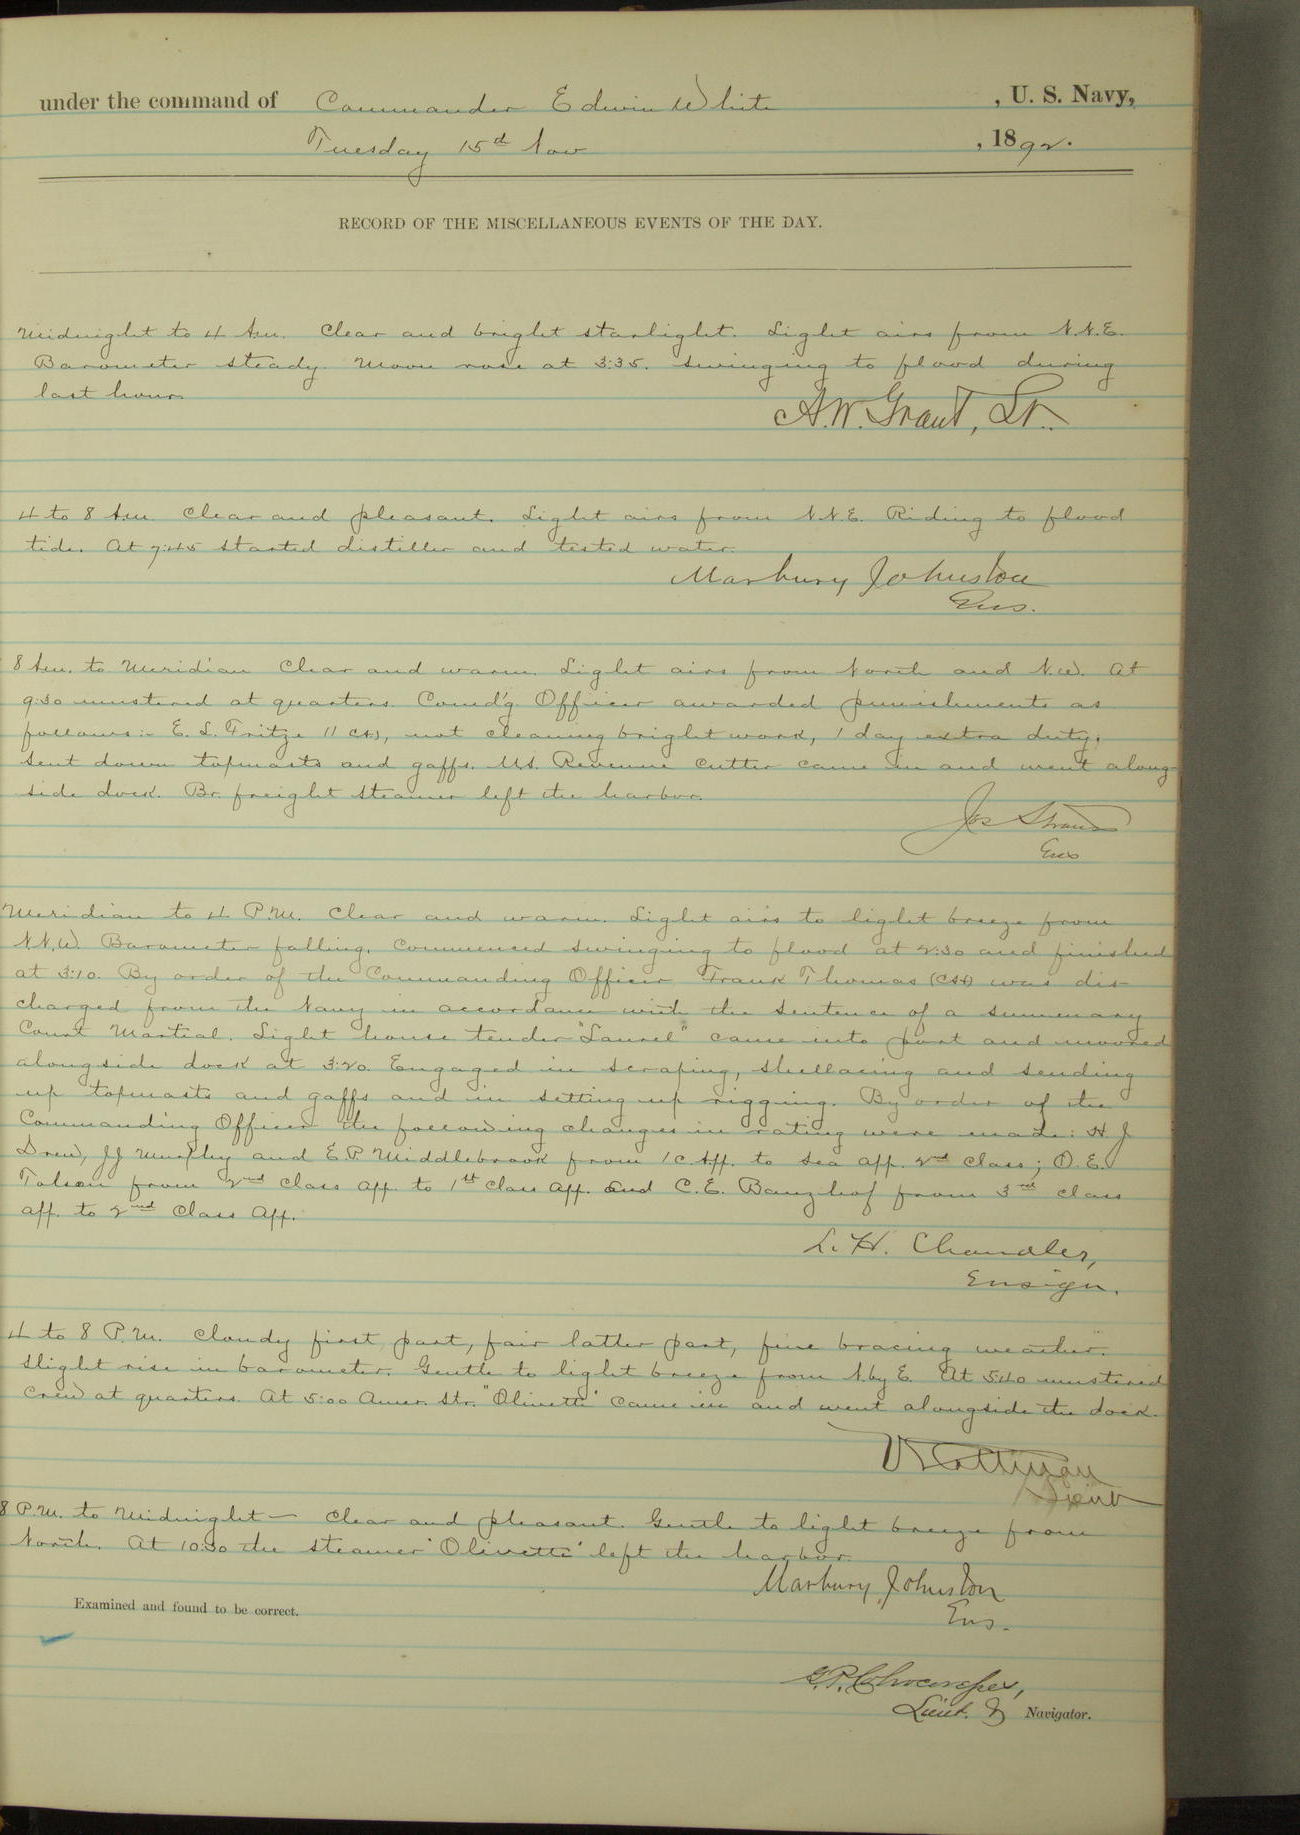 under the command of Commander Edwin White , U. S. Navy,
Tuesday 15th Nov , 1892.
RECORD OF THE MISCELLANEOUS EVENTS OF THE DAY.
Midnight to 4 A.m. Clear and bright starlight. Light airs from N.N.E.
Barometer steady. Moon rose at 3:35. Swinging to flood during
last hour.
A.W. Grant, Lt.
4 to 8 A.m. Clear and pleasant. Light airs from N.N.E. Riding to flood
tide. At 7:45 started distiller and tested water.
Marbury Johnston
Ens.
8 A.m. to Meridian Clear and warm. Light airs from North and N.W. At
9:30 mustered at quarters. Comd'g. Officer awarded punishments as
follows:- E. L. Fritze not cleaning bright work, 1 day extra duty.
Sent down topmasts and gaffs. U.S. Revenue Cutter came in and went along-
side dock. Br. freight steamer left the harbor.
Jos Strauss
Ens
Meridian to 4 P.M. Clear and warm. Light airs to light breeze from
N.N.W. Barometer falling. Commenced swinging to flood at 2:30 and finished
at 3:10. By order of the Commanding Officer Frank Thomas was dis-
charged from the Navy in accordance with the sentence of a summary
Court Martial. Light house tender "Laurel" came into port and moored
alongside dock at 3:20. Engaged in scraping, shellacing and sending
up topmasts and gaffs and in setting up rigging. By order of the
Commanding Officer the following changes in rating were made: H J
Drew, J J Murphy and E P Middlebrook from 1 C. App. to Sea app. 2nd Class; O. E.
Tolson from 2nd Class App. to 1st Class App. and C. E. Banzhof from 3rd Class
app. to 2nd Class App.
L. H. Chandler,
Ensign.
4 to 8 P.M. Cloudy first part, fair latter part, fine bracing weather.
Slight rise in barometer. Gentle to light breeze from N. by E. At 5:40 mustered
crew at quarters. At 5:00 Amer. Str. "Olivette" came in and went alongside the dock.
V L Cottman
Lieut
8 P.M. to Midnight — Clear and pleasant. Gentle to light breeze from
North. At 10:30 the steamer "Olivette" left the harbor.
Marbury Johnston
Ens.
Examined and found to be correct.
Lieut. & Navigator.